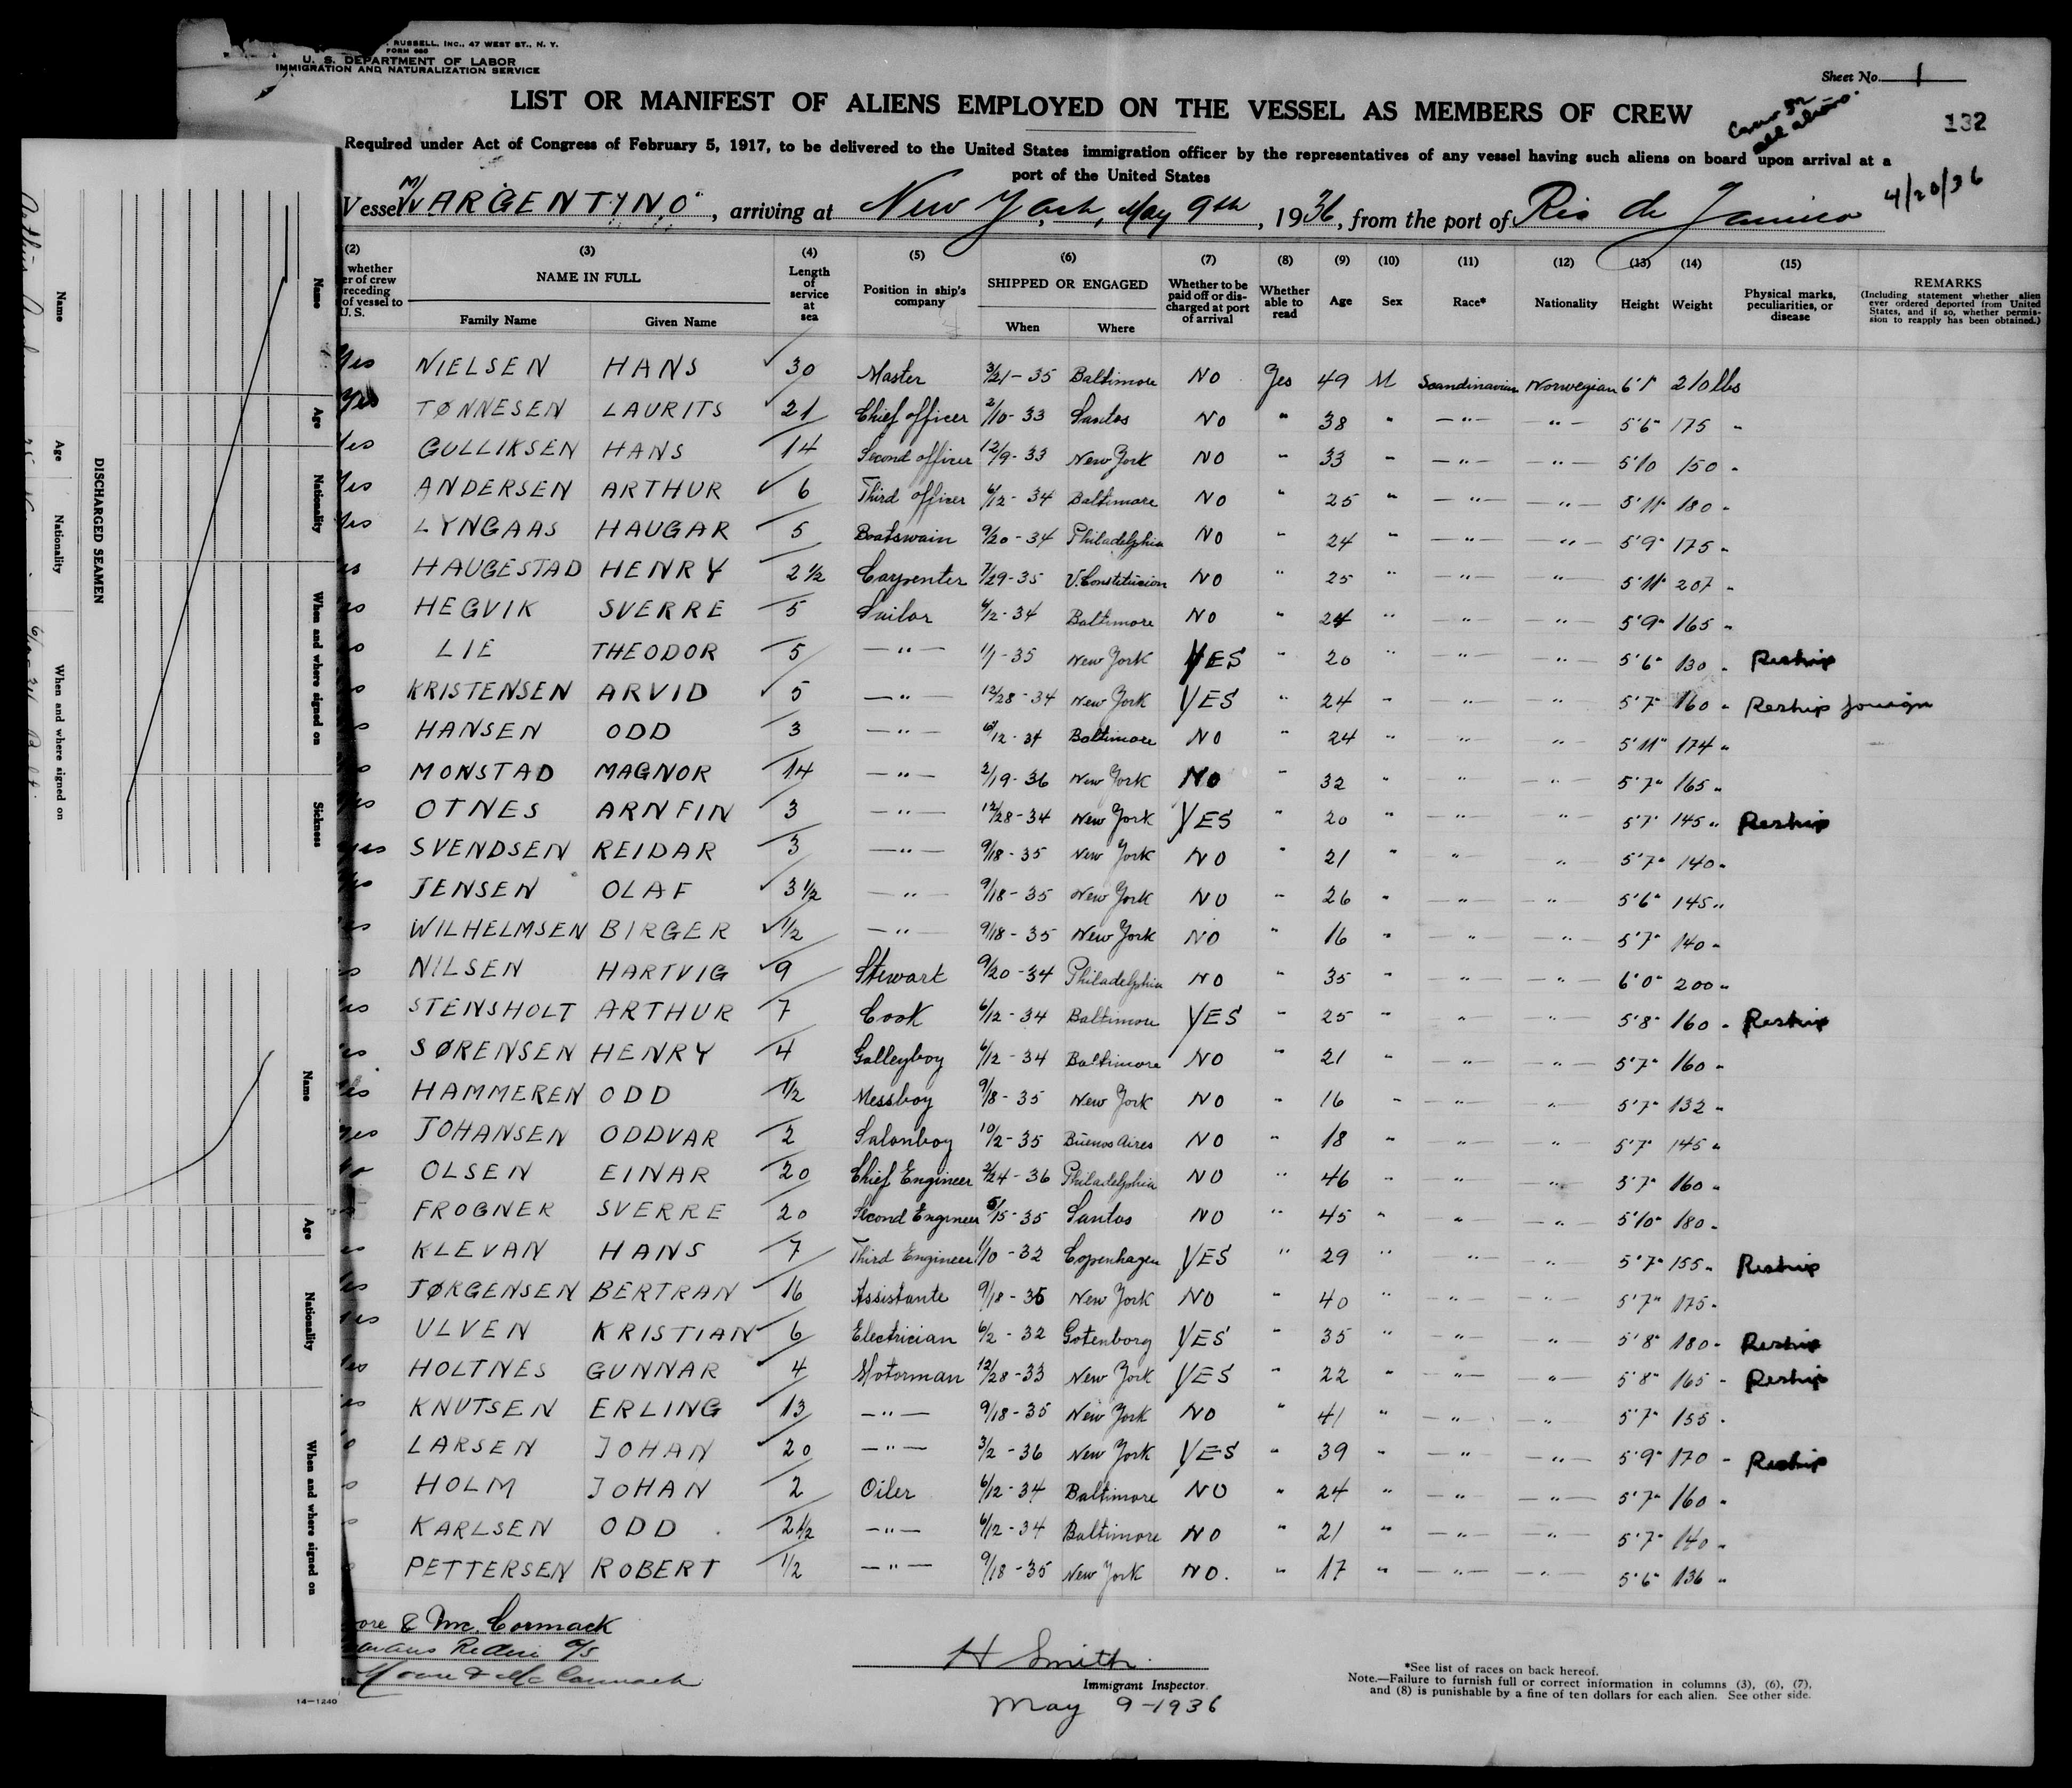 RUSSELL, INC., 47 WEST ST., N. Y.
FORM 680
U. S. DEPARTMENT OF LABOR
IMMIGRATION AND NATURALIZATION SERVICE
Sheet No. 1
LIST OR MANIFEST OF ALIENS EMPLOYED ON THE VESSEL AS MEMBERS OF CREW
132
Required under Act of Congress of February 5, 1917, to be delivered to the United States immigration officer by the representatives of any vessel having such aliens on board upon arrival at a
port of the United States
4/20/36
Vessel ARGENTINO, arriving at New York, May 9th, 1936, from the port of Rio de Janeiro
(2) (3) (4) (5) (6) (7) (8) (9) (10) (11) (12) (13) (14) (15)
whether
er of crew
receding
of vessel to
U. S.
NAME IN FULL
Family Name Given Name
Length of service at sea
Position in ship's company
SHIPPED OR ENGAGED
When Where
Whether to be paid off or discharged at port of arrival
Whether able to read
Age Sex Race* Nationality Height Weight
Physical marks, peculiarities, or disease
REMARKS
(Including statement whether alien ever ordered deported from United States, and if so, whether permission to reapply has been obtained.)
Yes NIELSEN HANS 30 Master 3/21-35 Baltimore NO Yes 49 M Scandinavian Norwegian 6'1" 210 lbs
Yes TØNNESEN LAURITS 21 Chief officer 2/10-33 Santos NO " 38 " " " 5'6" 175 "
Yes GULLIKSEN HANS 14 Second officer 12/9-33 New York NO " 33 " " " 5'10 150 "
Yes ANDERSEN ARTHUR 6 Third officer 6/12-34 Baltimore NO " 25 " " " 5'11" 180 "
Yes LYNGAAS HAUGAR 5 Boatswain 9/20-34 Philadelphia NO " 24 " " " 5'9" 175 "
HAUGESTAD HENRY 2 1/2 Carpenter 7/29-35 V. Constitucion NO " 25 " " " 5'11" 207 "
HEGVIK SVERRE 5 Sailor 6/12-34 Baltimore NO " 24 " " " 5'9" 165 "
LIE THEODOR 5 " 1/1-35 New York YES " 20 " " " 5'6" 130 " Reship
KRISTENSEN ARVID 5 " 12/28-34 New York YES " 24 " " " 5'7" 160 " Reship foreign
HANSEN ODD 3 " 6/12-34 Baltimore NO " 24 " " " 5'11" 174 "
MONSTAD MAGNOR 14 " 2/19-36 New York NO " 32 " " " 5'7" 165 "
OTNES ARNFIN 3 " 12/28-34 New York YES " 20 " " " 5'7" 145 " Reship
SVENDSEN REIDAR 3 " 9/18-35 New York NO " 21 " " " 5'7" 140 "
JENSEN OLAF 3 1/2 " 9/18-35 New York NO " 26 " " " 5'6" 145 "
WILHELMSEN BIRGER 1/2 " 9/18-35 New York NO " 16 " " " 5'7" 140 "
NILSEN HARTVIG 9 Stewart 9/20-34 Philadelphia NO " 35 " " " 6'0" 200 "
STENSHOLT ARTHUR 7 Cook 6/12-34 Baltimore YES " 25 " " " 5'8" 160 " Reship
SØRENSEN HENRY 4 Galleyboy 6/12-34 Baltimore NO " 21 " " " 5'7" 160 "
HAMMEREN ODD 1/2 Messboy 9/18-35 New York NO " 16 " " " 5'7" 132 "
Yes JOHANSEN ODDVAR 2 Salonboy 10/2-35 Buenos Aires NO " 18 " " " 5'7" 145 "
OLSEN EINAR 20 Chief Engineer 2/24-36 Philadelphia NO " 46 " " " 5'7" 160 "
FROGNER SVERRE 20 Second Engineer 5/15-35 Santos NO " 45 " " " 5'10" 180 "
KLEVAN HANS 7 Third Engineer 1/10-32 Copenhagen YES " 29 " " " 5'7" 155 " Reship
JØRGENSEN BERTRAN 16 Assistante 9/18-35 New York NO " 40 " " " 5'7" 175 "
ULVEN KRISTIAN 6 Electrician 6/2-32 Gotenborg YES " 35 " " " 5'8" 180 " Reship
HOLTNES GUNNAR 4 Motorman 12/28-33 New York YES " 22 " " " 5'8" 165 " Reship
KNUTSEN ERLING 13 " 9/18-35 New York NO " 41 " " " 5'7" 155 "
LARSEN JOHAN 20 " 3/2-36 New York YES " 39 " " " 5'9" 170 " Reship
HOLM JOHAN 2 Oiler 6/12-34 Baltimore NO " 24 " " " 5'7" 160 "
KARLSEN ODD 2 1/2 " 6/12-34 Baltimore NO " 21 " " " 5'7" 140 "
PETTERSEN ROBERT 1/2 " 9/18-35 New York NO. " 17 " " " 5'6" 136 "
ore & Mc. Cormack
Rederi A/S
Moore & McCormack
14-1240
H Smith
Immigrant Inspector.
May 9-1936
*See list of races on back hereof.
Note.—Failure to furnish full or correct information in columns (3), (6), (7),
and (8) is punishable by a fine of ten dollars for each alien. See other side.
DISCHARGED SEAMEN
Name Age Nationality When and where signed on
Name Age Nationality When and where signed on Sickness
Name Age Nationality When and where signed on